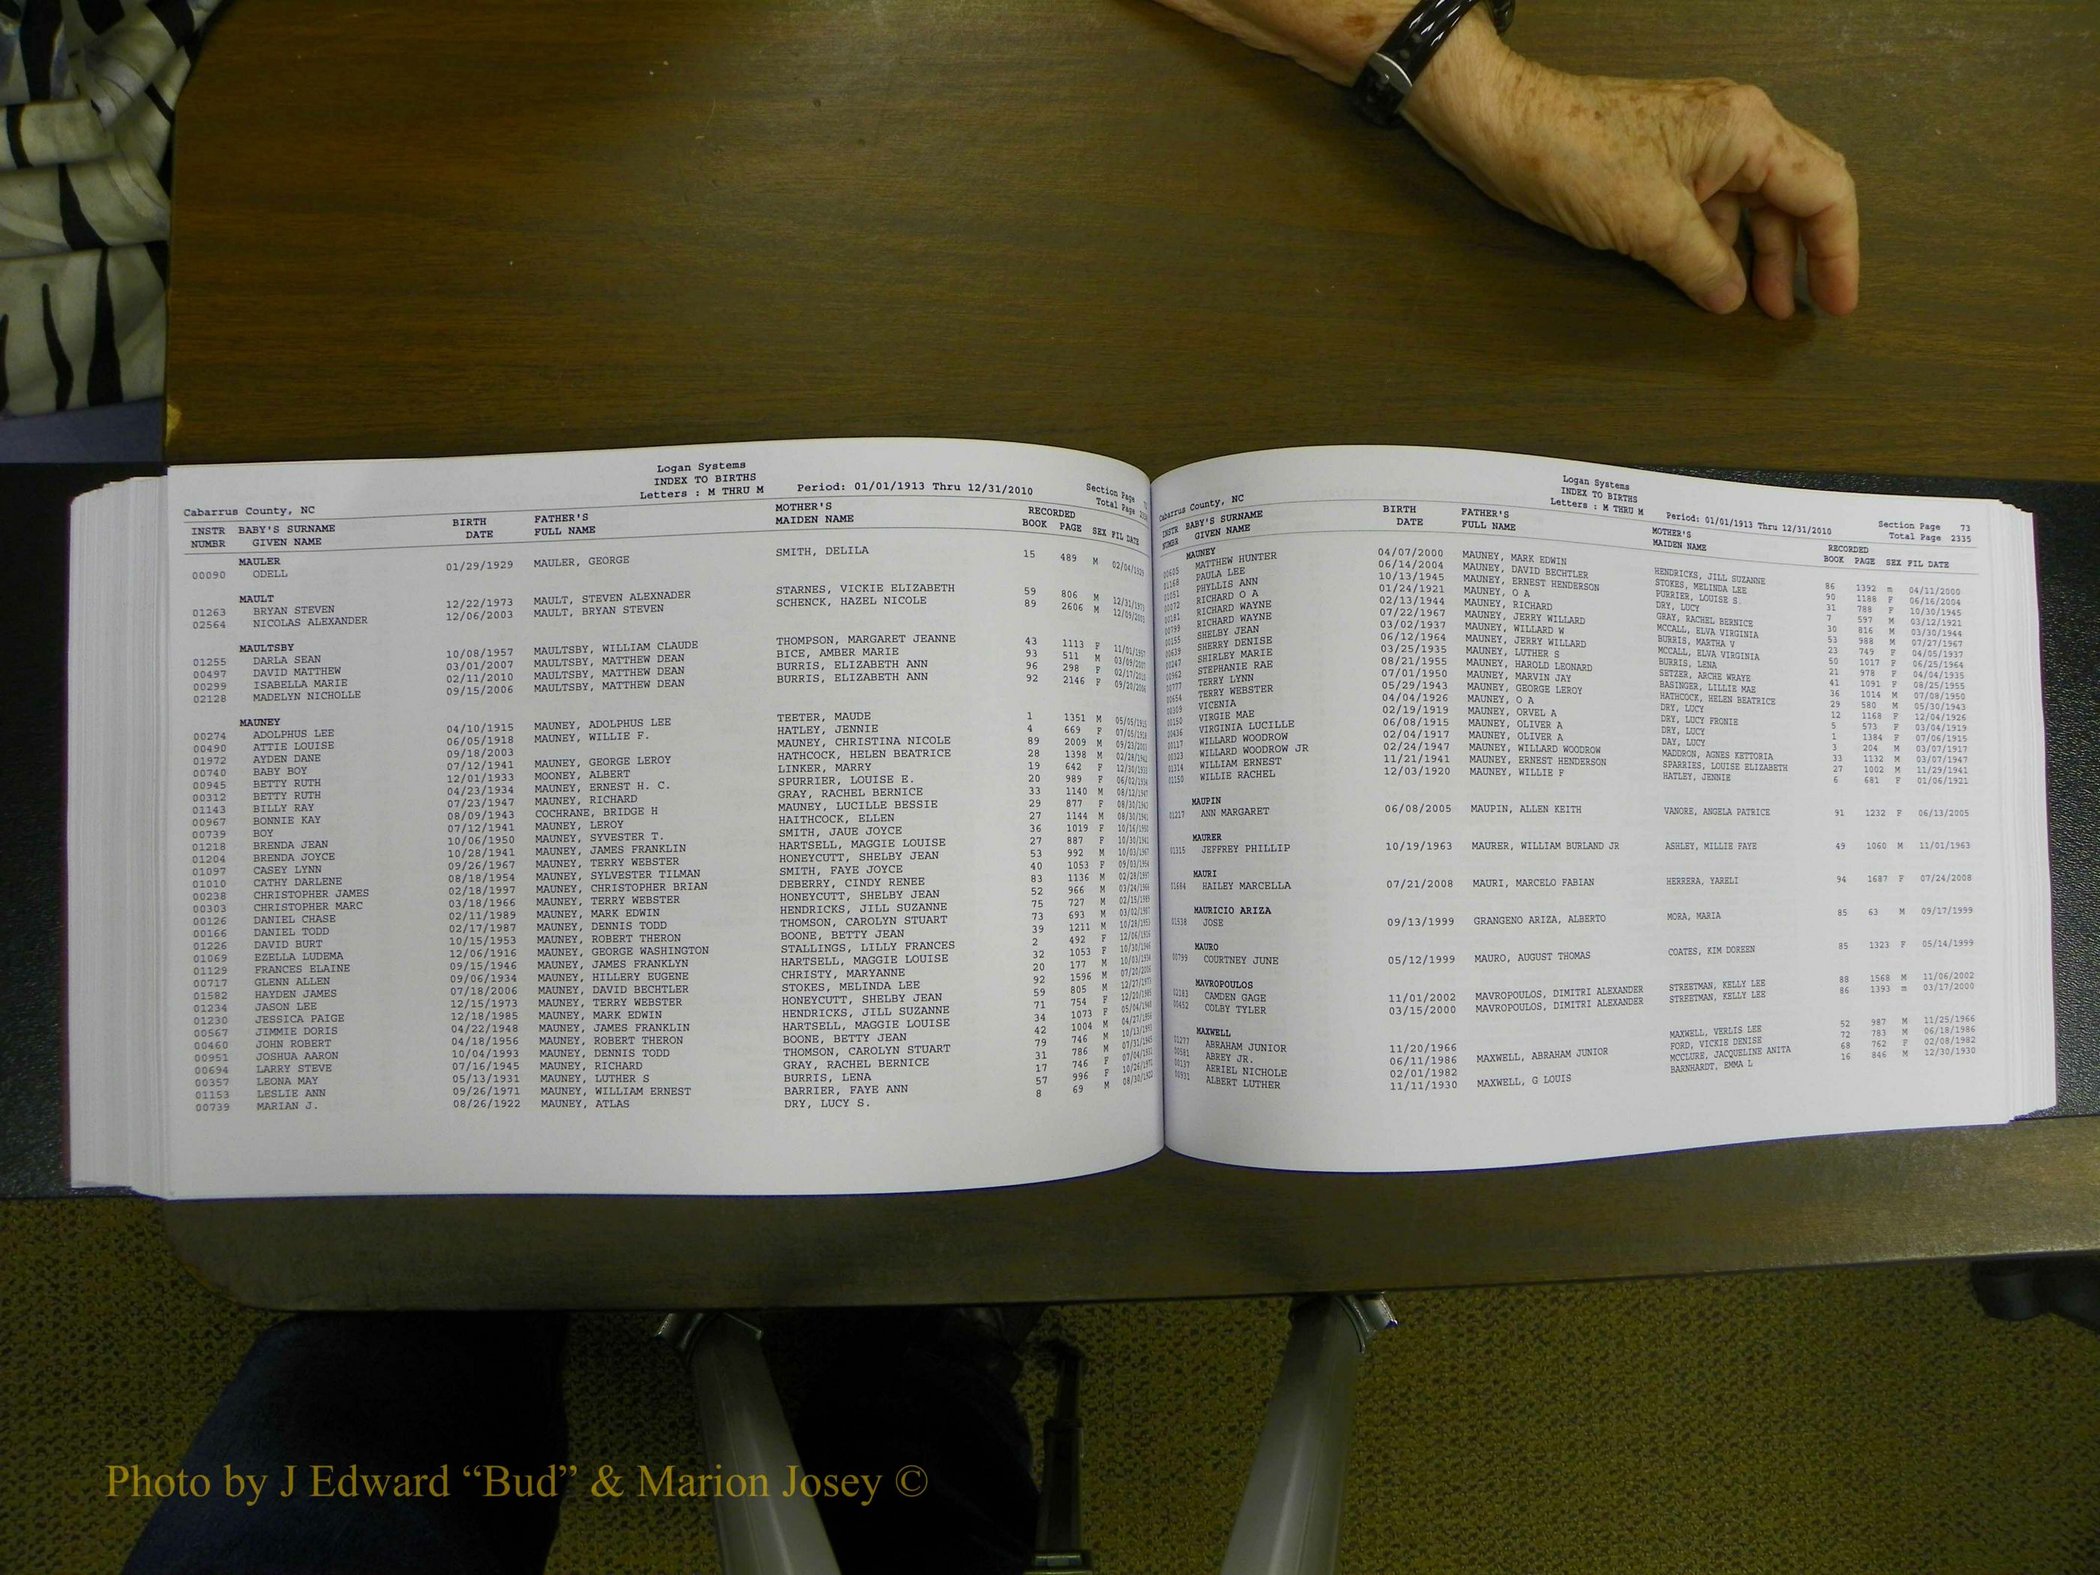 Logan Systems
INDEX TO BIRTHS
Letters : M THRU M Period: 01/01/1913 Thru 12/31/2010 Section Page
Cabarrus County, NC Total Page
INSTR BABY'S SURNAME BIRTH FATHER'S MOTHER'S RECORDED
NUMBR GIVEN NAME DATE FULL NAME MAIDEN NAME BOOK PAGE SEX FIL DATE
MAULER
00090 ODELL 01/29/1929 MAULER, GEORGE SMITH, DELILA 15 489 M 02/04/1929
MAULT
01263 BRYAN STEVEN 12/22/1973 MAULT, STEVEN ALEXNADER STARNES, VICKIE ELIZABETH 59 806 M 12/31/1973
02564 NICOLAS ALEXANDER 12/06/2003 MAULT, BRYAN STEVEN SCHENCK, HAZEL NICOLE 89 2606 M 12/09/2003
MAULTSBY
01255 DARLA SEAN 10/08/1957 MAULTSBY, WILLIAM CLAUDE THOMPSON, MARGARET JEANNE 43 1113 F 11/01/1957
00497 DAVID MATTHEW 03/01/2007 MAULTSBY, MATTHEW DEAN BICE, AMBER MARIE 93 511 M 03/09/2007
00299 ISABELLA MARIE 02/11/2010 MAULTSBY, MATTHEW DEAN BURRIS, ELIZABETH ANN 96 298 F 02/17/2010
02128 MADELYN NICHOLLE 09/15/2006 MAULTSBY, MATTHEW DEAN BURRIS, ELIZABETH ANN 92 2146 F 09/20/2006
MAUNEY
00274 ADOLPHUS LEE 04/10/1915 MAUNEY, ADOLPHUS LEE TEETER, MAUDE 1 1351 M 05/05/1915
00490 ATTIE LOUISE 06/05/1918 MAUNEY, WILLIE F. HATLEY, JENNIE 4 669 F 07/05/1918
01972 AYDEN DANE 09/18/2003 MAUNEY, CHRISTINA NICOLE 89 2009 M 09/23/2003
00740 BABY BOY 07/12/1941 MAUNEY, GEORGE LEROY HATHCOCK, HELEN BEATRICE 28 1398 M
00945 BETTY RUTH 12/01/1933 MOONEY, ALBERT LINKER, MARRY 19 642 F 12/30/1933
00312 BETTY RUTH 04/23/1934 MAUNEY, ERNEST H. C. SPURRIER, LOUISE E. 20 989 F 06/02/1934
01143 BILLY RAY 07/23/1947 MAUNEY, RICHARD GRAY, RACHEL BERNICE 33 1140 M 08/12/1947
00967 BONNIE KAY 08/09/1943 COCHRANE, BRIDGE H MAUNEY, LUCILLE BESSIE 29 877 F 08/30/1943
00739 BOY 07/12/1941 MAUNEY, LEROY HAITHCOCK, ELLEN 27 1144 M 08/30/1941
01218 BRENDA JEAN 10/06/1950 MAUNEY, SYVESTER T. SMITH, JAUE JOYCE 36 1019 F 10/16/1950
01204 BRENDA JOYCE 10/28/1941 MAUNEY, JAMES FRANKLIN HARTSELL, MAGGIE LOUISE 27 887 F 10/30/1941
01097 CASEY LYNN 09/26/1967 MAUNEY, TERRY WEBSTER HONEYCUTT, SHELBY JEAN 53 992 M 10/03/1967
01010 CATHY DARLENE 08/18/1954 MAUNEY, SYLVESTER TILMAN SMITH, FAYE JOYCE 40 1053 F 09/03/1954
00238 CHRISTOPHER JAMES 02/18/1997 MAUNEY, CHRISTOPHER BRIAN DEBERRY, CINDY RENEE 83 1136 M 02/28/1997
00303 CHRISTOPHER MARC 03/18/1966 MAUNEY, TERRY WEBSTER HONEYCUTT, SHELBY JEAN 52 966 M 03/24/1966
00126 DANIEL CHASE 02/11/1989 MAUNEY, MARK EDWIN HENDRICKS, JILL SUZANNE 75 727 M 02/15/1989
00166 DANIEL TODD 02/17/1987 MAUNEY, DENNIS TODD THOMSON, CAROLYN STUART 73 693 M 03/02/1987
01226 DAVID BURT 10/15/1953 MAUNEY, ROBERT THERON BOONE, BETTY JEAN 39 1211 M 10/28/1953
01069 EZELLA LUDEMA 12/06/1916 MAUNEY, GEORGE WASHINGTON STALLINGS, LILLY FRANCES 2 492 F 12/06/1916
01129 FRANCES ELAINE 09/15/1946 MAUNEY, JAMES FRANKLYN HARTSELL, MAGGIE LOUISE 32 1053 F 10/30/1946
00717 GLENN ALLEN 09/06/1934 MAUNEY, HILLERY EUGENE CHRISTY, MARYANNE 20 177 M 10/03/1934
01582 HAYDEN JAMES 07/18/2006 MAUNEY, DAVID BECHTLER STOKES, MELINDA LEE 92 1596 M 07/20/2006
01234 JASON LEE 12/15/1973 MAUNEY, TERRY WEBSTER HONEYCUTT, SHELBY JEAN 59 805 M 12/27/1973
01230 JESSICA PAIGE 12/18/1985 MAUNEY, MARK EDWIN HENDRICKS, JILL SUZANNE 71 754 F 12/20/1985
00567 JIMMIE DORIS 04/22/1948 MAUNEY, JAMES FRANKLIN HARTSELL, MAGGIE LOUISE 34 1073 F 05/04/1948
00460 JOHN ROBERT 04/18/1956 MAUNEY, ROBERT THERON BOONE, BETTY JEAN 42 1004 M 04/27/1956
00951 JOSHUA AARON 10/04/1993 MAUNEY, DENNIS TODD THOMSON, CAROLYN STUART 79 746 M 10/13/1993
00694 LARRY STEVE 07/16/1945 MAUNEY, RICHARD GRAY, RACHEL BERNICE 31 786 M 07/31/1945
00357 LEONA MAY 05/13/1931 MAUNEY, LUTHER S BURRIS, LENA 17 746 F 07/04/1931
01153 LESLIE ANN 09/26/1971 MAUNEY, WILLIAM ERNEST BARRIER, FAYE ANN 57 996 F 10/26/1971
00739 MARIAN J. 08/26/1922 MAUNEY, ATLAS DRY, LUCY S. 8 69 M 08/30/1922
Logan Systems
INDEX TO BIRTHS
Letters : M THRU M Period: 01/01/1913 Thru 12/31/2010 Section Page 73
Cabarrus County, NC Total Page 2335
INSTR BABY'S SURNAME BIRTH FATHER'S MOTHER'S RECORDED
NUMBR GIVEN NAME DATE FULL NAME MAIDEN NAME BOOK PAGE SEX FIL DATE
MAUNEY
00605 MATTHEW HUNTER 04/07/2000 MAUNEY, MARK EDWIN HENDRICKS, JILL SUZANNE 86 1392 m 04/11/2000
01168 PAULA LEE 06/14/2004 MAUNEY, DAVID BECHTLER STOKES, MELINDA LEE 90 1188 F 06/16/2004
01051 PHYLLIS ANN 10/13/1945 MAUNEY, ERNEST HENDERSON PURRIER, LOUISE S. 31 788 F 10/30/1945
00072 RICHARD O A 01/24/1921 MAUNEY, O A DRY, LUCY 7 597 M 03/12/1921
00181 RICHARD WAYNE 02/13/1944 MAUNEY, RICHARD GRAY, RACHEL BERNICE 30 816 M 03/30/1944
00799 RICHARD WAYNE 07/22/1967 MAUNEY, JERRY WILLARD MCCALL, ELVA VIRGINIA 53 988 M 07/27/1967
00155 SHELBY JEAN 03/02/1937 MAUNEY, WILLARD W BURRIS, MARTHA V 23 749 F 04/05/1937
00639 SHERRY DENISE 06/12/1964 MAUNEY, JERRY WILLARD MCCALL, ELVA VIRGINIA 50 1017 F 06/25/1964
00247 SHIRLEY MARIE 03/25/1935 MAUNEY, LUTHER S BURRIS, LENA 21 978 F 04/04/1935
00962 STEPHANIE RAE 08/21/1955 MAUNEY, HAROLD LEONARD SETZER, ARCHE WRAYE 41 1091 F 08/25/1955
00777 TERRY LYNN 07/01/1950 MAUNEY, MARVIN JAY BASINGER, LILLIE MAE 36 1014 M 07/08/1950
00654 TERRY WEBSTER 05/29/1943 MAUNEY, GEORGE LEROY HATHCOCK, HELEN BEATRICE 29 580 M 05/30/1943
00309 VICENIA 04/04/1926 MAUNEY, O A DRY, LUCY 12 1168 F 12/04/1926
00150 VIRGIE MAE 02/19/1919 MAUNEY, ORVEL A DRY, LUCY FRONIE 5 573 F 03/04/1919
00436 VIRGINIA LUCILLE 06/08/1915 MAUNEY, OLIVER A DRY, LUCY 1 1384 F 07/06/1915
00117 WILLARD WOODROW 02/04/1917 MAUNEY, OLIVER A DAY, LUCY 3 204 M 03/07/1917
00323 WILLARD WOODROW JR 02/24/1947 MAUNEY, WILLARD WOODROW MADDRON, AGNES KETTORIA 33 1132 M 03/07/1947
01314 WILLIAM ERNEST 11/21/1941 MAUNEY, ERNEST HENDERSON SPARRIES, LOUISE ELIZABETH 27 1002 M 11/29/1941
01150 WILLIE RACHEL 12/03/1920 MAUNEY, WILLIE F HATLEY, JENNIE 6 681 F 01/06/1921
MAUPIN
01217 ANN MARGARET 06/08/2005 MAUPIN, ALLEN KEITH VANORE, ANGELA PATRICE 91 1232 F 06/13/2005
MAURER
01315 JEFFREY PHILLIP 10/19/1963 MAURER, WILLIAM BURLAND JR ASHLEY, MILLIE FAYE 49 1060 M 11/01/1963
MAURI
01684 HAILEY MARCELLA 07/21/2008 MAURI, MARCELO FABIAN HERRERA, YARELI 94 1687 F 07/24/2008
MAURICIO ARIZA
01538 JOSE 09/13/1999 GRANGENO ARIZA, ALBERTO MORA, MARIA 85 63 M 09/17/1999
MAURO
00799 COURTNEY JUNE 05/12/1999 MAURO, AUGUST THOMAS COATES, KIM DOREEN 85 1323 F 05/14/1999
MAVROPOULOS
02183 CAMDEN GAGE 11/01/2002 MAVROPOULOS, DIMITRI ALEXANDER STREETMAN, KELLY LEE 88 1568 M 11/06/2002
00452 COLBY TYLER 03/15/2000 MAVROPOULOS, DIMITRI ALEXANDER STREETMAN, KELLY LEE 86 1393 m 03/17/2000
MAXWELL
01277 ABRAHAM JUNIOR 11/20/1966 MAXWELL, VERLIS LEE 52 987 M 11/25/1966
00581 ABREY JR. 06/11/1986 MAXWELL, ABRAHAM JUNIOR FORD, VICKIE DENISE 72 783 M 06/18/1986
00137 AERIEL NICHOLE 02/01/1982 MCCLURE, JACQUELINE ANITA 68 762 F 02/08/1982
00931 ALBERT LUTHER 11/11/1930 MAXWELL, G LOUIS BARNHARDT, EMMA L 16 846 M 12/30/1930
Photo by J Edward “Bud” & Marion Josey ©